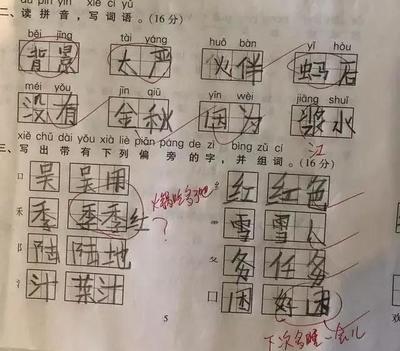 dú pīn yīn xiě cí yǔ
二、读拼音，写词语。(16分)
bèi jǐng tài yáng huǒ bàn yǐ hòu
背景 太严 伙伴 蚂石
méi yǒu jīn qiū yīn wèi jiāng shuǐ
没有 金秋 因为 浆水
江
xiě chū dài yǒu xià liè piān páng de zì bìng zǔ cí
三、写出带有下列偏旁的字，并组词。(16分)
口 吴 吴用 纟 红 红色
禾 季 季季红 ? 火锅吃多了吧 雪 雪人
阝 陆 陆地 夂 务 任务
氵 汁 菜汁 囗 困 好困
5
下次多睡一会儿